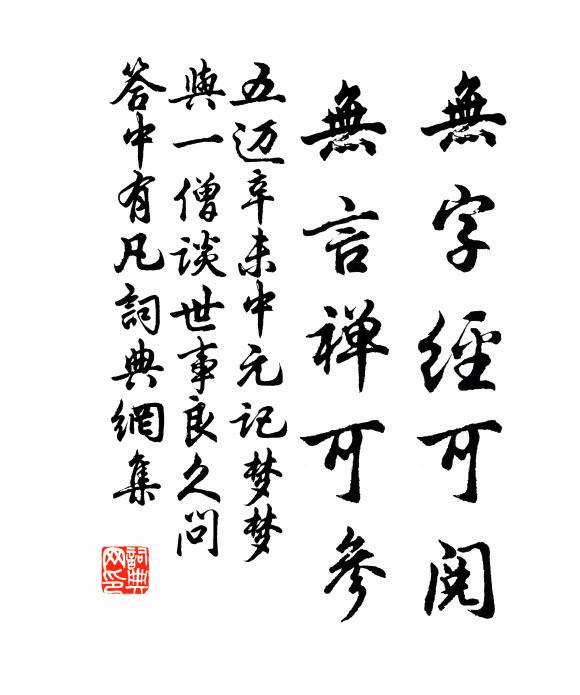 無字經可閱
無言禅可參
五迈辛未中元记梦梦
與一僧談世事良久问
答中有凡詞典網集
詞典网印